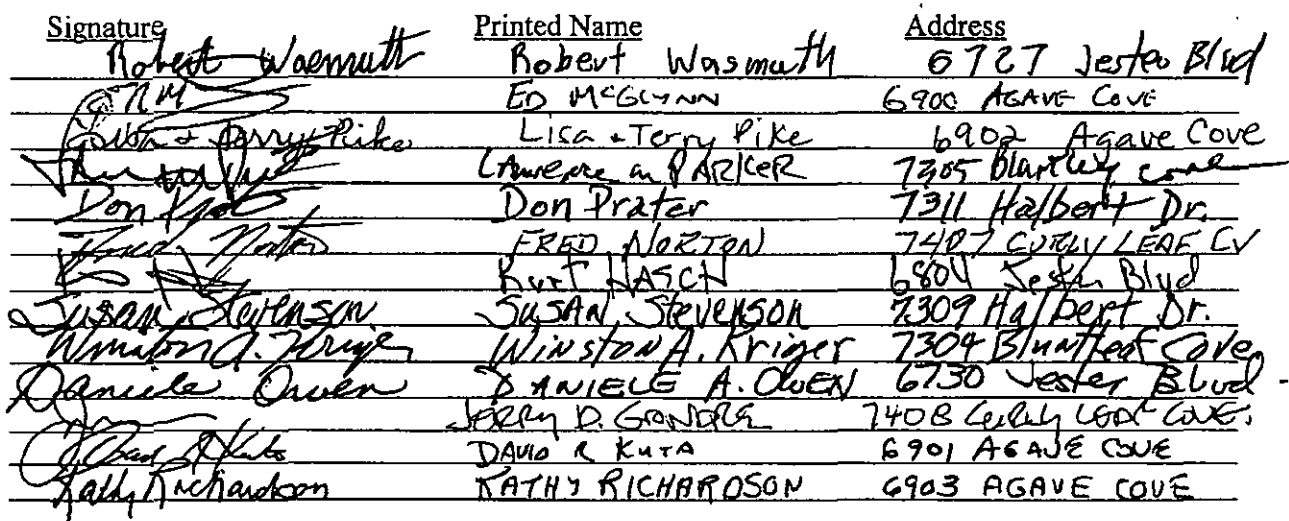 Signature Printed Name Address
Robert Wasmuth Robert Wasmuth 6727 Jester Blvd
ED McGLYNN 6900 AGAVE COVE
Lisa + Terry Pike Lisa + Terry Pike 6902 Agave Cove
PARKER 7305 cove
Don Prater Don Prater 7311 Halbert Dr.
Fred Norton FRED NORTON 7407 CURLY LEAF CV
Kurt HASCH 6804 Jester Blvd
Susan Stevenson SUSAN Stevenson 7309 Halbert Dr.
Winston A. Kriger Winston A. Kriger 7304 Bluntleaf Cove
Daniele Owen DANIELE A. OWEN 6730 Jester Blvd
JERRY D. 7408 Curly Leaf COVE.
DAVID R KUTA 6901 AGAVE COVE
Kathy Richardson KATHY RICHARDSON 6903 AGAVE COVE